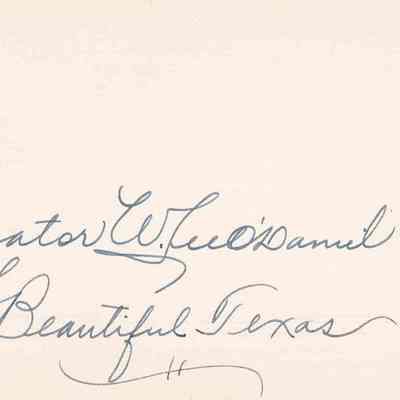 ator W. Lee O'Daniel
Beautiful Texas
"